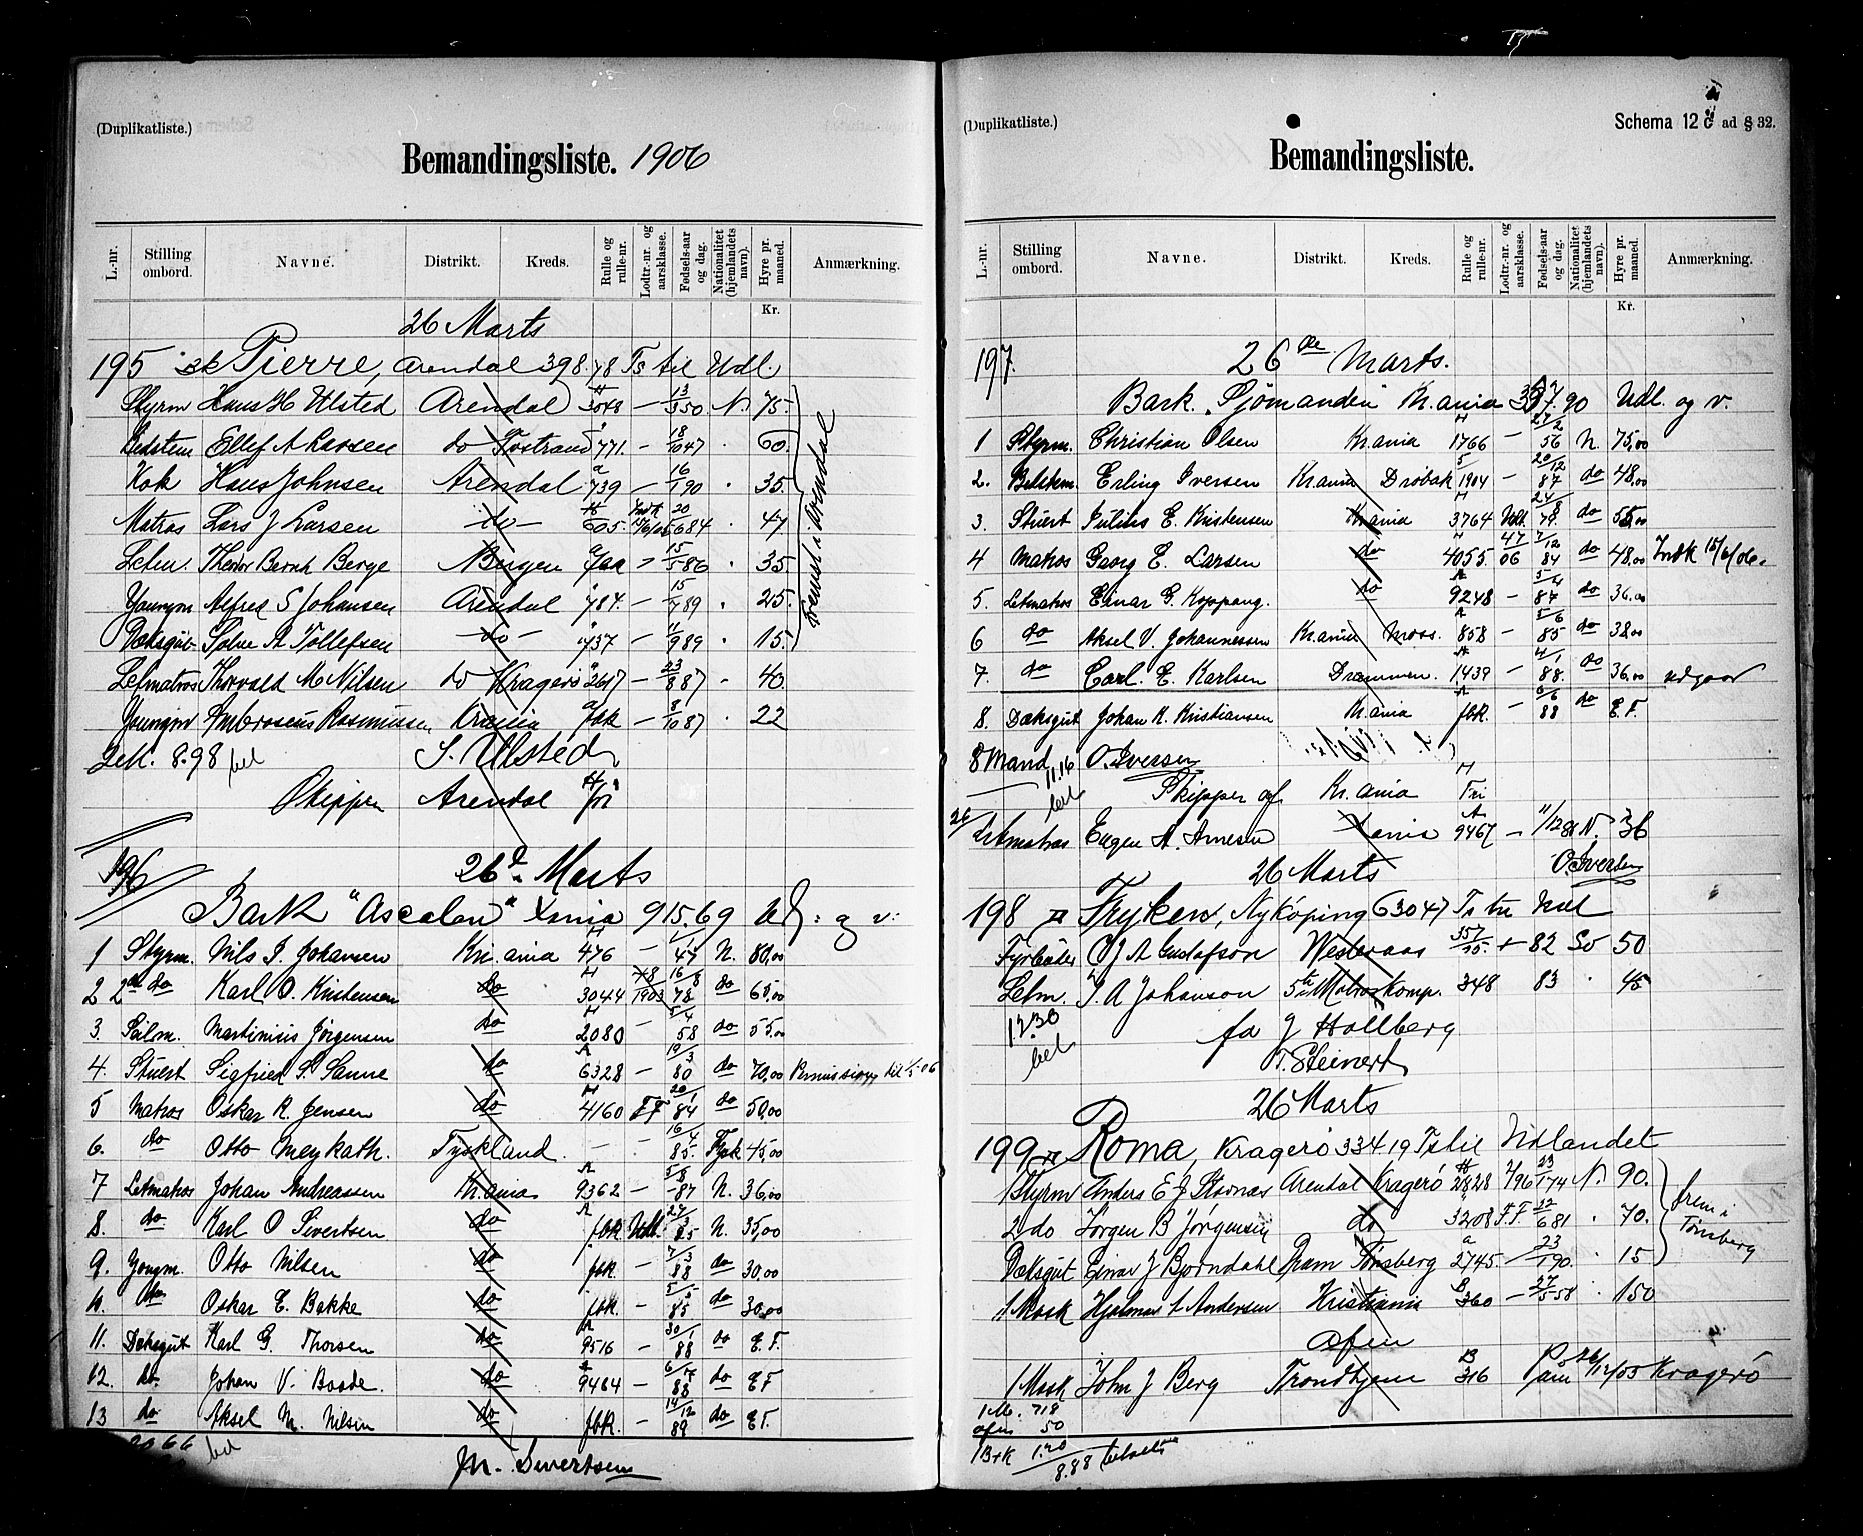 (Duplikatliste.)
Bemandingsliste. 1906
L.-nr. Stilling ombord. Navne. Distrikt. Kreds. Rulle og rulle-nr. Lodtr.-nr. og aarsklasse. Fødsels-aar og dag. Nationalitet (hjemlandets navn). Hyre pr. maaned. Anmærkning.
Kr.
26 Marts
195 Pierre, Arendal 398.78 Ts til Udl.
Styrm Hans H Ulsted Arendal 3048 — 13/3 50 N. 75.
Ellef A Larsen do Tostrand 771. — 18/10 47 60.
Kok Hans Johnsen Arendal 739 — 16/1 90 35.
Matros Lars J Larsen — do — 605. 20/6 84 47
Letm. Theodor Bernh Berge Bergen — 15/5 86 35
Youngm Alfred S Johansen Arendal 784. — 15/7 89 25.
Dæksgut Solve A Tollefsen — do — 437 — 11/9 89 15.
fremst i Arendal
Letmatros Thorvald M Nilsen do Kragerø 2617 — 23/8 87 40.
Youngm Ambrosius Rasmussen Krania fbk — 8/10 87 22
8.98 bet S. Ulsted
Skipper Arendal fri
196 26d. Marts
Bark "Ascalon" Xania 915.69 Udl: og v:
1 Styrm. Nils J. Johansen Kr.ania 476 — 47 N. 80,00
2 2den do Karl O. Kristensen do 3044 1903 16/8 78 do 65,00
3. Seilm. Martinius Jörgensen do 2080 — 58 do 55,00
4. Stuert Sigfried S. Sanne do 6328 — 19/3 80 do 70,00 Permission til 1/5 06
5 Matros Oskar R. Jensen do 4160 FF 20/1 84 do 50,00
6. do Otto Meykath. Tyskland. — - 16/4 85. Tysk 45,00
7 Letmatros Johan Andreassen Kr.ania 9362 — 5/8 87 N. 36,00
8. do Karl O Sivertsen do fbk. Udt. 85 N. 35,00
9. Yongm. Otto Nilsen do fbk. — 7/3 88 do 30,00
do Oskar E. Bakke do fbk. — 85 do 30,00
11. Dæksgut Karl G. Thorsen do 9516 — 30/1 88 do E. F.
12. do. Johan V. Baade. do 9484 — 88 do E F
13 do Aksel M. Nilsen do fbk. — 14/12 89 do E F.
2066 bet M. Sivertsen
(Duplikatliste.) Schema 12 ad § 32.
Bemandingsliste.
L.-nr. Stilling ombord. Navne. Distrikt. Kreds. Rulle og rulle-nr. Lodtr.-nr. og aarsklasse. Fødsels-aar og dag. Nationalitet (hjemlandets navn). Hyre pr. maaned. Anmærkning.
Kr.
197. 26de Marts.
Bark. Sjömanden Kr.ania Udl. og v.
1 Styrm. Christian Olsen Kr.ania 1766 — 27/2 56 N. 75,00
2. Erling Iversen Kr.ania Dröbak 1904 — 20/12 87 do 48,00
3. Stuert Julius E. Kristensen Kr.ania 3764 Udt. 24/8 79. do 55,00
4 Matros Georg E. Larsen do 4055. 47/06 2/12 84 do 48,00 Indk 15/6/06.
5. Letmatros Einar G. Koppang. do 9248 — 5/4 87 do 36,00
6 do Aksel V. Johannessen Kr.ania Moss. 858 — 5/6 85 do 38,00
7. do Carl. E. Karlsen Drammen. 1439 — 4/1 88. do 36,00 udgaar
8. Dæksgut Johan K. Kristiansen Kr.ania fbk. — 6/6 88 do E. F.
8 Mand 11.16 bet O. Iversen
Skipper af Kr.ania Fri
26/ Letmatros Eugen A. Arnesen Xania 9467 — 11/12 N. 36
26 Marts O. Iversen
198 Fryken, Nyköping 63047 Ts til Udl
Fyrböder O J A Gustafson Westeraas 357/95. + 82 Sv 50
Letm. J. A Johanson 5te Matroskomp. 348 83 45
12.30 bet fa J Hallberg
T. Steinert
26 Marts
199 Roma, Kragerø 334.19 Ts til Udlandet
1 Styrm Anders E J Stavnæs Arendal Kragerø 2828 7/96 23/1 74 N. 90.
2 do Jørgen B Jørgensen do 3208 F.F. 22/6 81 70.
Dæksgut Einar J Bjørndahl Dram Tønsberg 2745. — 23/1 90. 15
frem i Tönsberg
1 Mask Hjalmar L Andersen Kristiania 360 — 27/5 58 150
Afm
1 Mask John J Berg Trondhjem 316 Paam 26/12/05 Kragerø
1 M. 718
afm 50
1.20
8.88 betalt